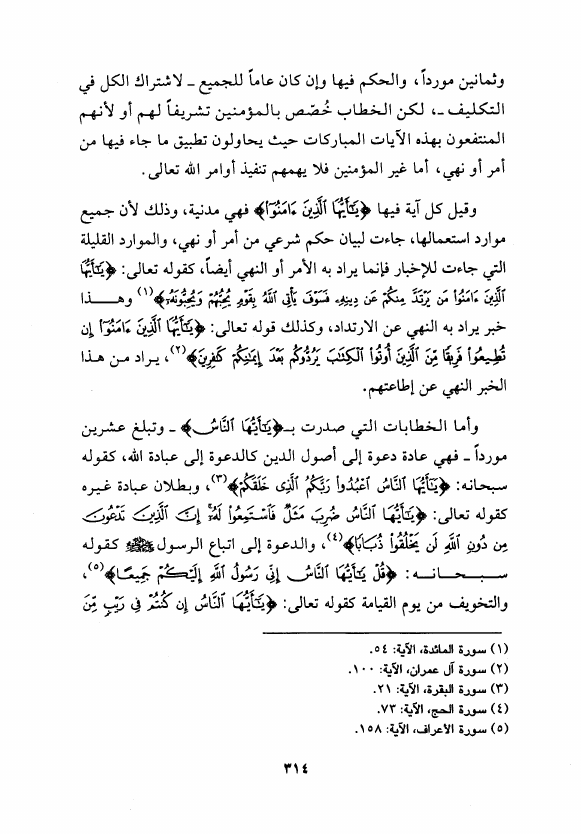 وثمانين مورداً، والحكم فيها وإن كان عاماً للجميع ـ لاشتراك الكل في
التكليف ـ، لكن الخطاب خُصّص بالمؤمنين تشريفاً لهم أو لأنهم
المنتفعون بهذه الآيات المباركات حيث يحاولون تطبيق ما جاء فيها من
أمر أو نهي، أما غير المؤمنين فلا يهمهم تنفيذ أوامر الله تعالى.
وقيل كل آية فيها ﴿يَٰٓأَيُّهَا ٱلَّذِينَ ءَامَنُوٓا۟﴾ فهي مدنية، وذلك لأن جميع
موارد استعمالها، جاءت لبيان حكم شرعي من أمر أو نهي، والموارد القليلة
التي جاءت للإخبار فإنما يراد به الأمر أو النهي أيضاً، كقوله تعالى: ﴿يَٰٓأَيُّهَا
ٱلَّذِينَ ءَامَنُوا۟ مَن يَرْتَدَّ مِنكُمْ عَن دِينِهِۦ فَسَوْفَ يَأْتِى ٱللَّهُ بِقَوْمٍ يُحِبُّهُمْ وَيُحِبُّونَهُۥٓ﴾(١) وهـــذا
خبر يراد به النهي عن الارتداد، وكذلك قوله تعالى: ﴿يَٰٓأَيُّهَا ٱلَّذِينَ ءَامَنُوٓا۟ إِن
تُطِيعُوا۟ فَرِيقًا مِّنَ ٱلَّذِينَ أُوتُوا۟ ٱلْكِتَٰبَ يَرُدُّوكُم بَعْدَ إِيمَٰنِكُمْ كَٰفِرِينَ﴾(٢)، يراد من هذا
الخبر النهي عن إطاعتهم.
وأما الخطابات التي صدرت بـ﴿يَٰٓأَيُّهَا ٱلنَّاسُ﴾ ـ وتبلغ عشرين
مورداً ـ فهي عادة دعوة إلى أصول الدين كالدعوة إلى عبادة الله، كقوله
سبحانه: ﴿يَٰٓأَيُّهَا ٱلنَّاسُ ٱعْبُدُوا۟ رَبَّكُمُ ٱلَّذِى خَلَقَكُمْ﴾(٣)، وبطلان عبادة غيره
كقوله تعالى: ﴿يَٰٓأَيُّهَا ٱلنَّاسُ ضُرِبَ مَثَلٌ فَٱسْتَمِعُوا۟ لَهُۥٓ إِنَّ ٱلَّذِينَ تَدْعُونَ
مِن دُونِ ٱللَّهِ لَن يَخْلُقُوا۟ ذُبَابًا﴾(٤)، والدعوة إلى اتباع الرسول ﷺ كقوله
سـبـحـانـه: ﴿قُلْ يَٰٓأَيُّهَا ٱلنَّاسُ إِنِّى رَسُولُ ٱللَّهِ إِلَيْكُمْ جَمِيعًا﴾(٥)،
والتخويف من يوم القيامة كقوله تعالى: ﴿يَٰٓأَيُّهَا ٱلنَّاسُ إِن كُنتُمْ فِى رَيْبٍ مِّنَ
(١) سورة المائدة، الآية: ٥٤.
(٢) سورة آل عمران، الآية: ١٠٠.
(٣) سورة البقرة، الآية: ٢١.
(٤) سورة الحج، الآية: ٧٣.
(٥) سورة الأعراف، الآية: ١٥٨.
٣١٤